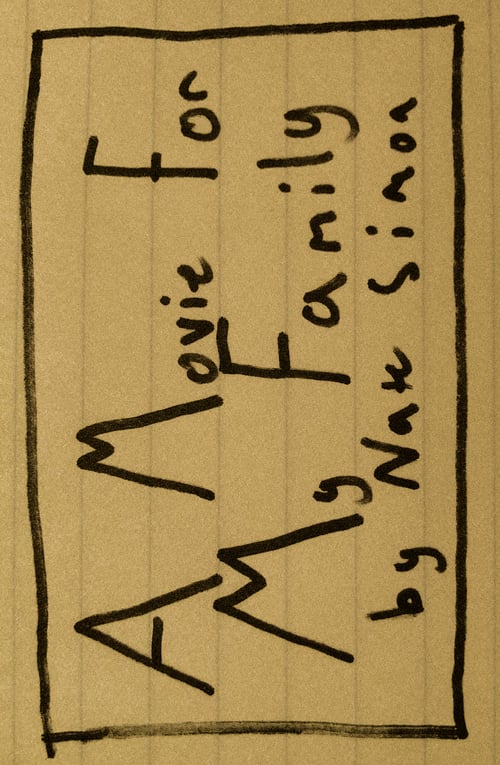 A Movie For
My Family
by Nate Simon